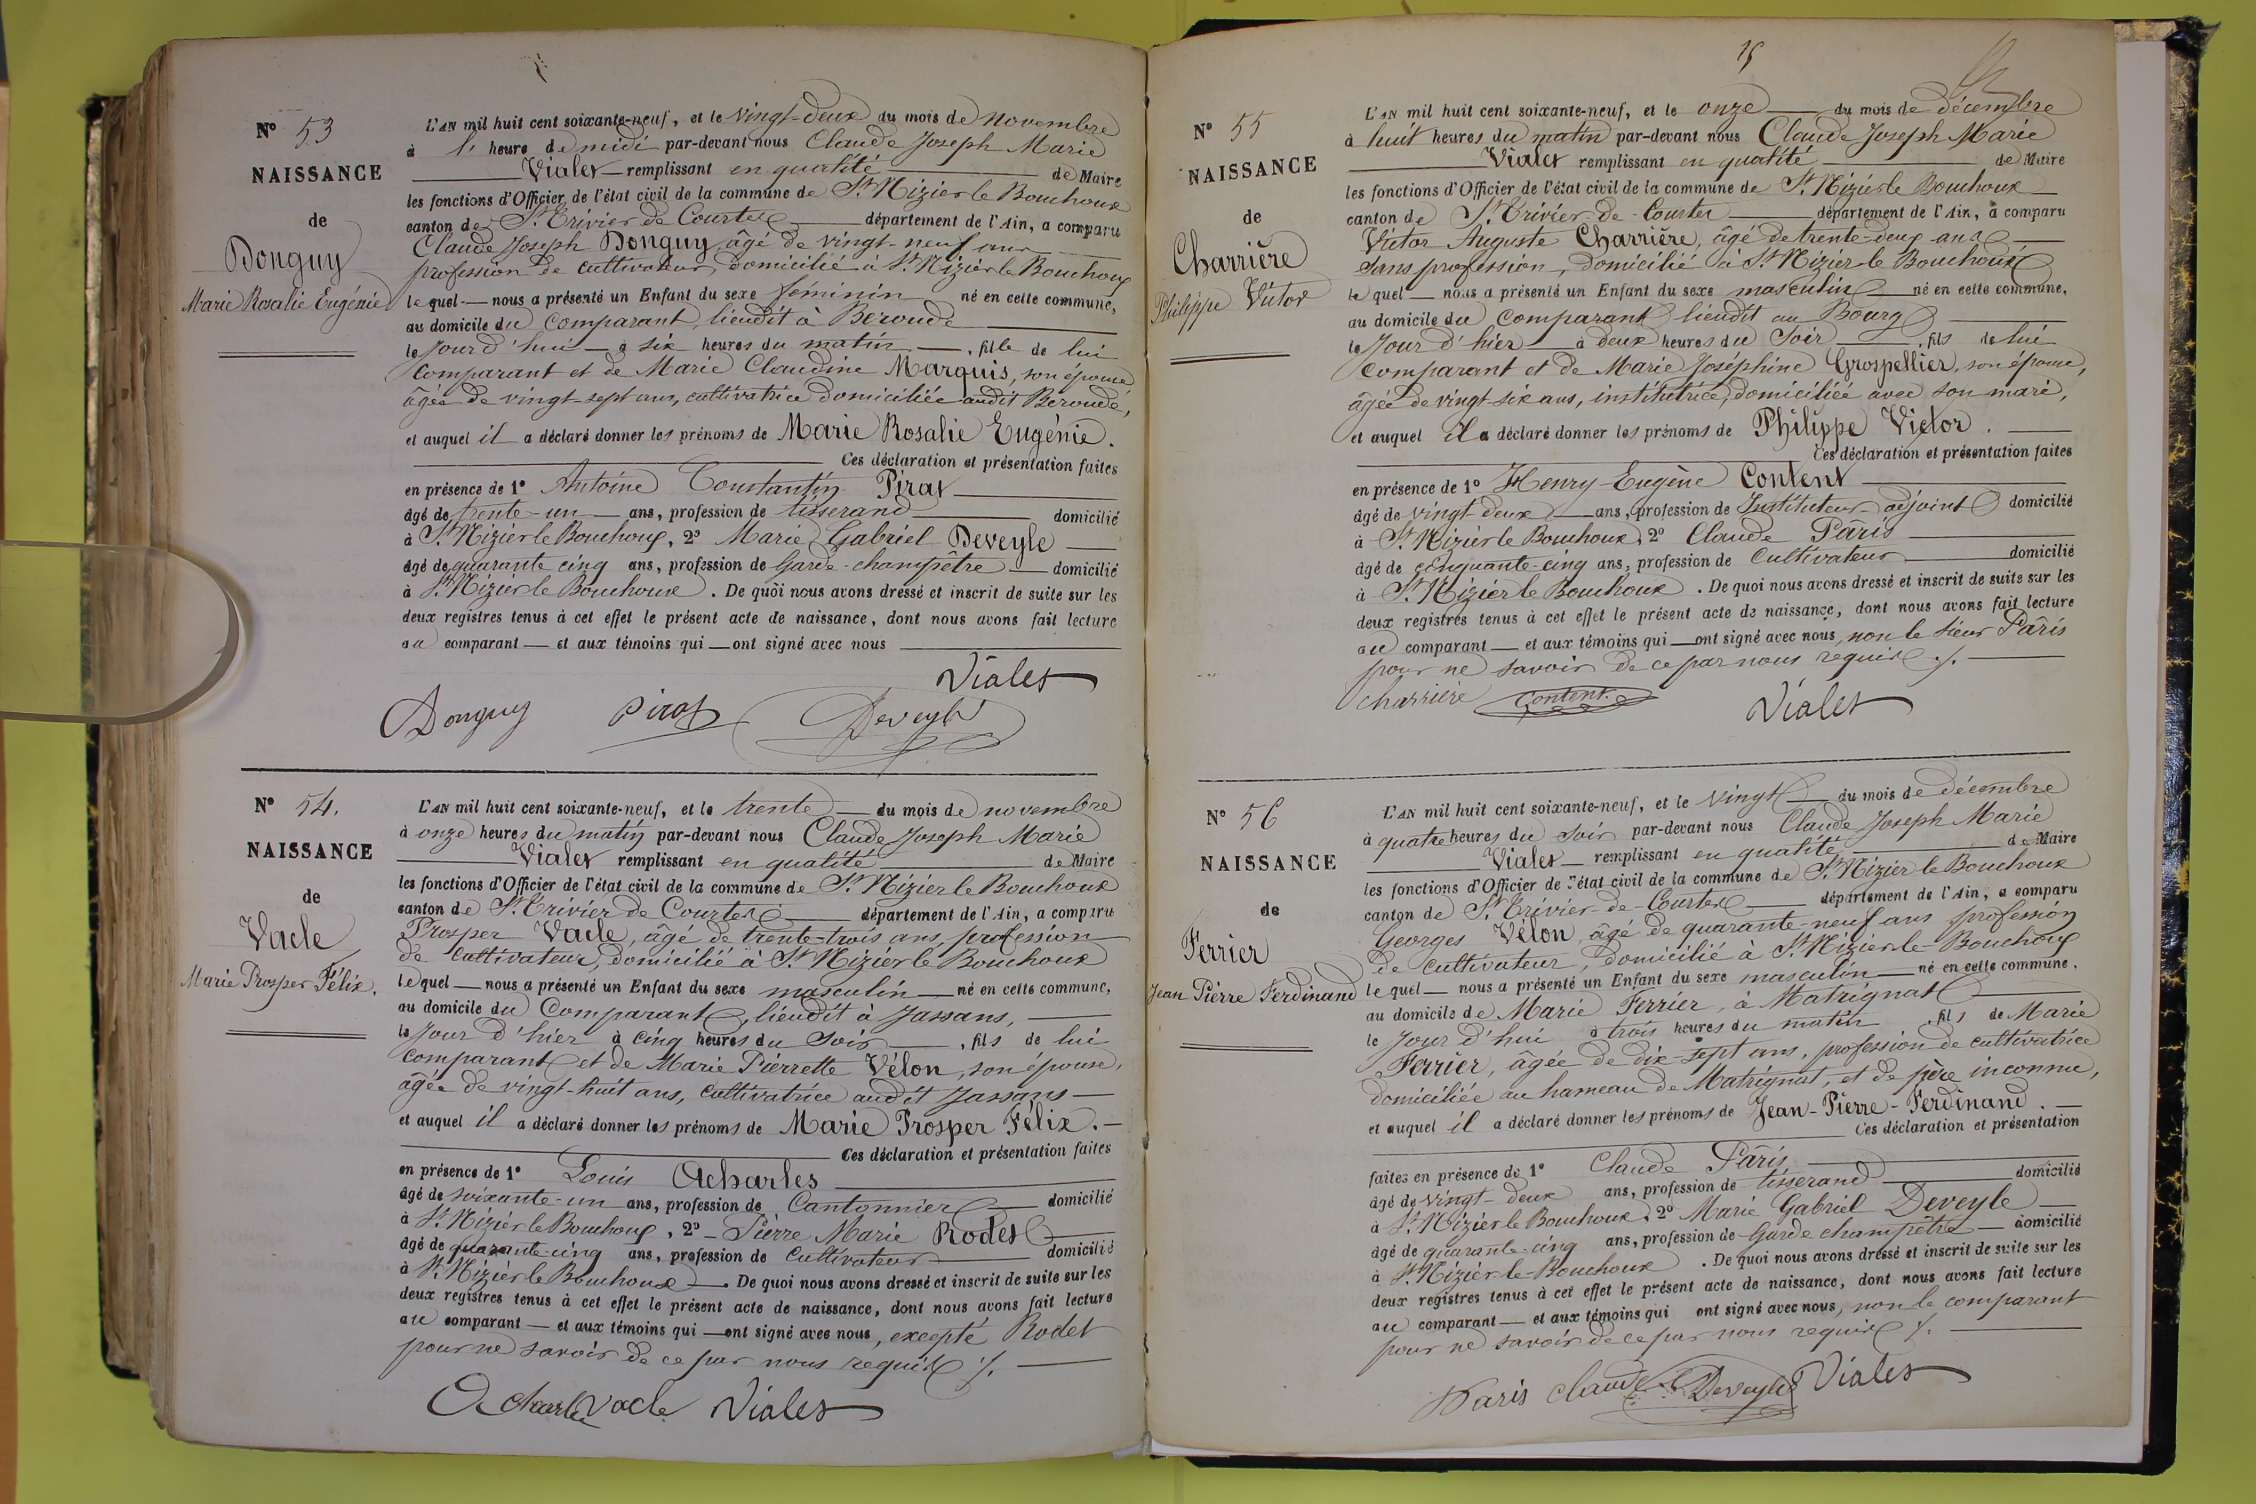 N° 53
NAISSANCE
de
Donguy
Marie Rosalie Eugénie
L'AN mil huit cent soixante-neuf, et le vingt-deux du mois de novembre
à l' heure de midi par-devant nous Claude Joseph Marie
Vialet remplissant en qualité de Maire
les fonctions d'Officier de l'état civil de la commune de St Nizier le Bouchoux
canton de St Trivier de Courtes département de l'Ain, a comparu
Claude Joseph Donguy, âgé de vingt-neuf ans
profession de cultivateur, domicilié à St Nizier le Bouchoux
lequel nous a présenté un Enfant du sexe féminin né en cette commune,
au domicile du comparant, lieudit à Béroude
le jour d'hui à six heures du matin, fille de lui
comparant et de Marie Claudine Marquis, son épouse
âgée de vingt-sept ans, cultivatrice domiciliée audit Béroude,
et auquel il a déclaré donner les prénoms de Marie Rosalie Eugénie.
Ces déclaration et présentation faites
en présence de 1° Antoine Constantin Pirat
âgé de trente-un ans, profession de tisserand domicilié
à St Nizier le Bouchoux, 2° Marie Gabriel Deveyle
âgé de quarante cinq ans, profession de Garde-champêtre domicilié
à St Nizier le Bouchoux. De quoi nous avons dressé et inscrit de suite sur les
deux registres tenus à cet effet le présent acte de naissance, dont nous avons fait lecture
au comparant et aux témoins qui ont signé avec nous
Vialet
Donguy Pirat Deveyle
N° 54.
NAISSANCE
de
Vacle
Marie Prosper Félix.
L'AN mil huit cent soixante-neuf, et le trente du mois de novembre
à onze heures du matin par-devant nous Claude Joseph Marie
Vialet remplissant en qualité de Maire
les fonctions d'Officier de l'état civil de la commune de St Nizier le Bouchoux
canton de St Trivier de Courtes département de l'Ain, a comparu
Prosper Vacle, âgé de trente-trois ans, profession
de cultivateur, domicilié à St Nizier le Bouchoux
lequel nous a présenté un Enfant du sexe masculin né en cette commune,
au domicile du Comparant, lieudit à Jassans,
le jour d'hier à cinq heures du soir, fils de lui
comparant et de Marie Pierrette Vélon, son épouse,
âgée de vingt-huit ans, cultivatrice audit Jassans
et auquel il a déclaré donner les prénoms de Marie Prosper Félix.
Ces déclaration et présentation faites
en présence de 1° Louis Acharles
âgé de soixante-un ans, profession de Cantonnier domicilié
à St Nizier le Bouchoux, 2° Pierre Marie Rodet
âgé de quarante-cinq ans, profession de cultivateur domicilié
à St Nizier le Bouchoux. De quoi nous avons dressé et inscrit de suite sur les
deux registres tenus à cet effet le présent acte de naissance, dont nous avons fait lecture
au comparant et aux témoins qui ont signé avec nous, excepté Rodet
pour ne savoir de ce par nous requis ./.
Acharles Vacle Vialet
N° 55
NAISSANCE
de
Charrière
Philippe Victor
L'AN mil huit cent soixante-neuf, et le onze du mois de décembre
à huit heures du matin par-devant nous Claude Joseph Marie
Vialet remplissant en qualité de Maire
les fonctions d'Officier de l'état civil de la commune de St Nizier le Bouchoux
canton de St Trivier-de-Courtes département de l'Ain, a comparu
Victor Auguste Charrière, âgé de trente-deux ans
sans profession, domicilié à St Nizier le Bouchoux
lequel nous a présenté un Enfant du sexe masculin né en cette commune,
au domicile du comparant lieudit au Bourg
le jour d'hier à deux heures du soir, fils de lui
comparant et de Marie Joséphine Grospellier, son épouse,
âgée de vingt-six ans, institutrice, domiciliée avec son mari,
et auquel il a déclaré donner les prénoms de Philippe Victor.
Ces déclaration et présentation faites
en présence de 1° Henry-Eugène Content
âgé de vingt-deux ans, profession de Instituteur-adjoint domicilié
à St Nizier le Bouchoux, 2° Claude Pâris
âgé de cinquante-cinq ans, profession de cultivateur domicilié
à St Nizier le Bouchoux. De quoi nous avons dressé et inscrit de suite sur les
deux registres tenus à cet effet le présent acte de naissance, dont nous avons fait lecture
au comparant et aux témoins qui ont signé avec nous, non le sieur Pâris
pour ne savoir de ce par nous requis ./.
Charrière Content Vialet
N° 56
NAISSANCE
de
Ferrier
Jean Pierre Ferdinand
L'AN mil huit cent soixante-neuf, et le vingt du mois de décembre
à quatre heures du soir par-devant nous Claude Joseph Marie
Vialet remplissant en qualité de Maire
les fonctions d'Officier de l'état civil de la commune de St Nizier le Bouchoux
canton de St Trivier-de-Courtes département de l'Ain, a comparu
Georges Vélon, âgé de quarante-neuf ans profession
de cultivateur, domicilié à St Nizier-le-Bouchoux
lequel nous a présenté un Enfant du sexe masculin né en cette commune,
au domicile de Marie Ferrier, à Matrignat
le jour d'hui à trois heures du matin, fils de Marie
Ferrier, âgée de dix-sept ans, profession de cultivatrice
domiciliée au hameau de Matrignat, et de père inconnu,
et auquel il a déclaré donner les prénoms de Jean-Pierre-Ferdinand.
Ces déclaration et présentation
faites en présence de 1° Claude Pâris
âgé de vingt-deux ans, profession de tisserand domicilié
à St Nizier le Bouchoux, 2° Marie Gabriel Deveyle
âgé de quarante-cinq ans, profession de Garde champêtre domicilié
à St Nizier-le-Bouchoux. De quoi nous avons dressé et inscrit de suite sur les
deux registres tenus à cet effet le présent acte de naissance, dont nous avons fait lecture
au comparant et aux témoins qui ont signé avec nous, non le comparant
pour ne savoir de ce par nous requis ./.
Paris Claude Deveyle Vialet